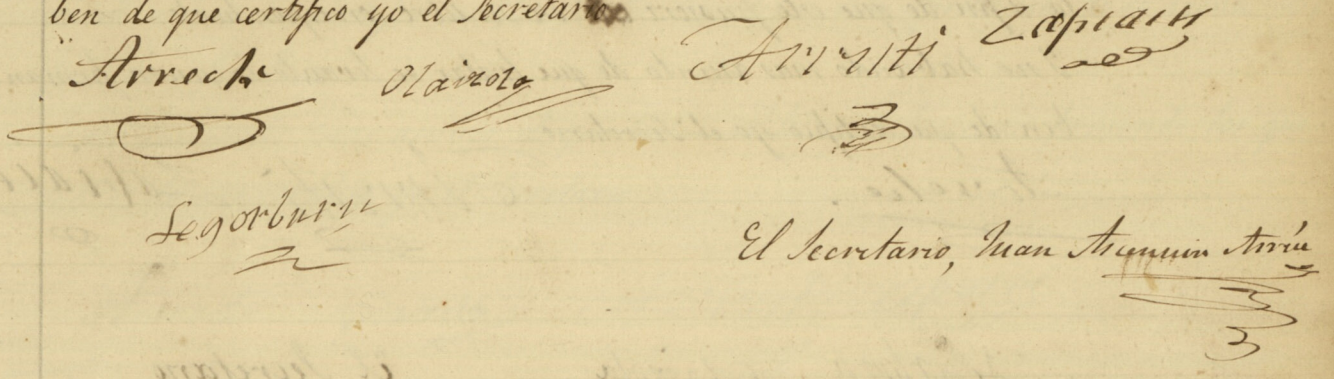 ben de que certifico yo el Secretario
Arreche Olaizola Arruti Zapiain
Segorburu
El Secretario, Juan Ascencio Arrúe